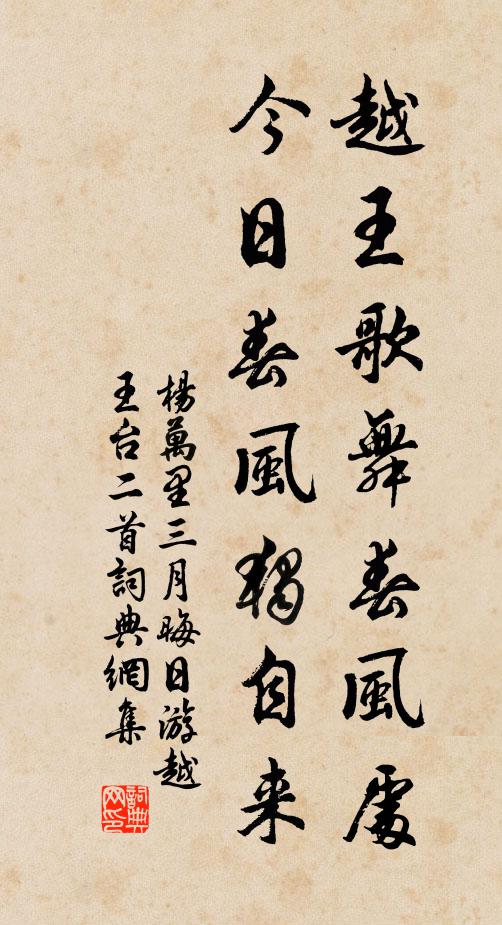 越王歌舞春風處
今日春風獨自来
楊萬里三月晦日游越
王台二首詞典網集
詞典
网印